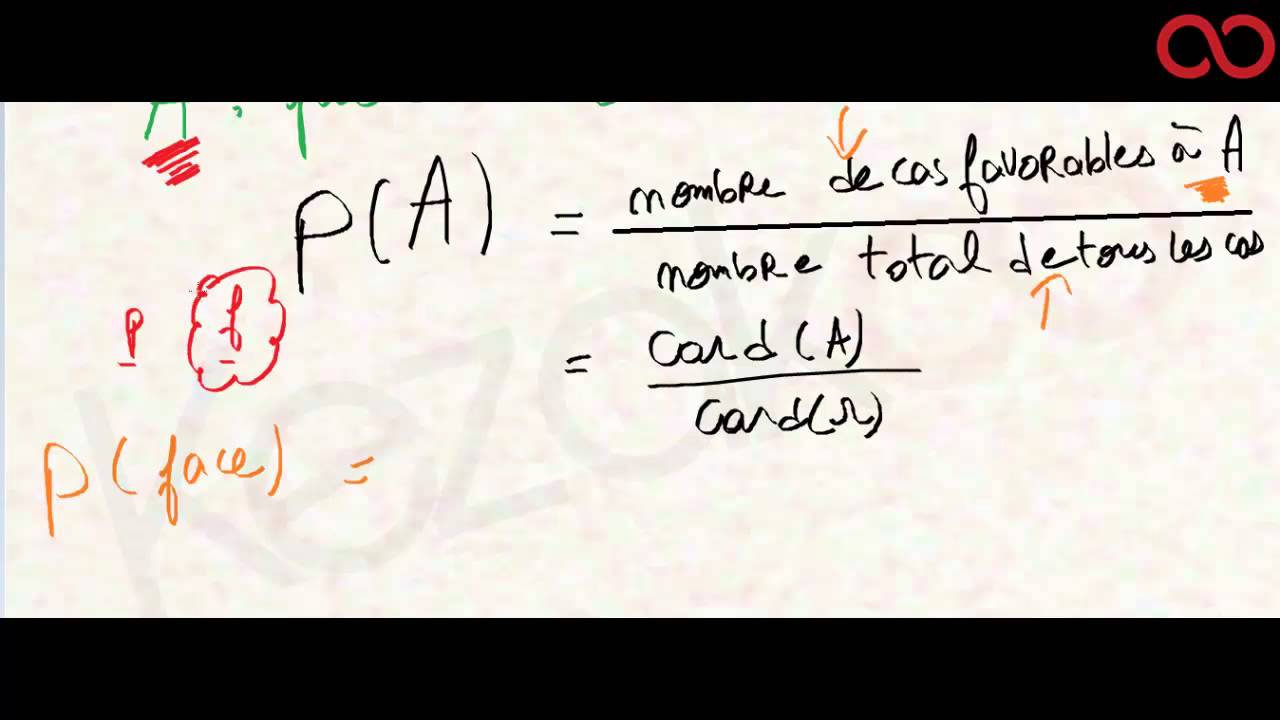 A :
P(A) = nombre de cas favorables à A
nombre total de tous les cas
P f
= Card(A)
Card(Ω)
P(face) =
KezaK